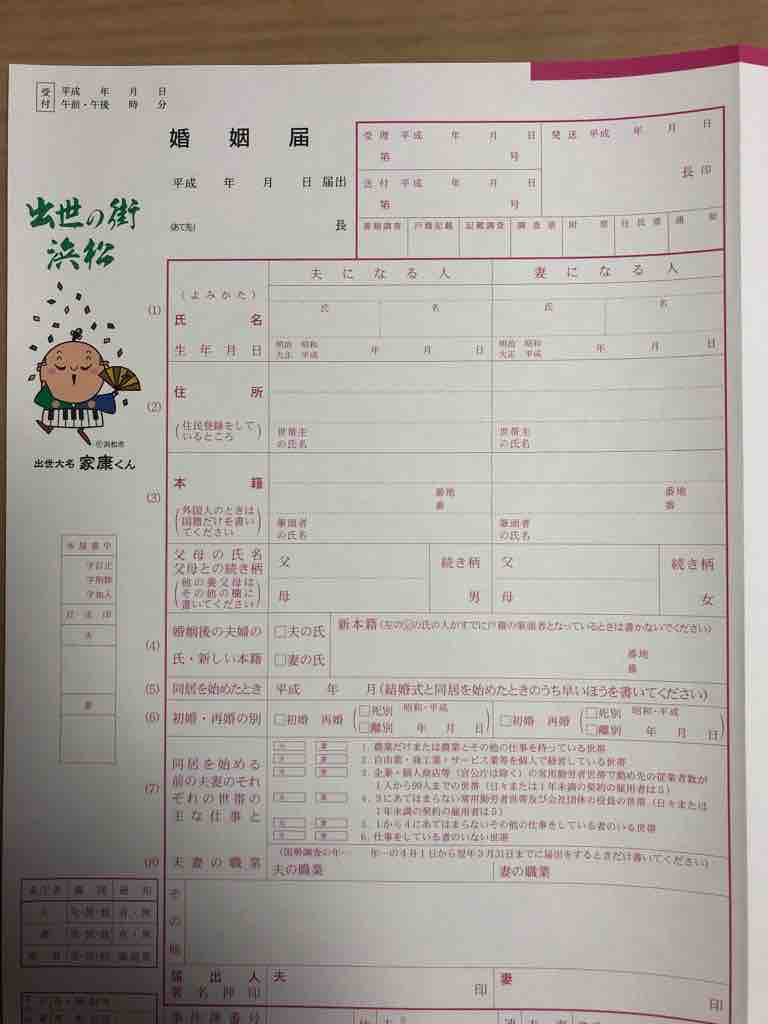 受付 平成 年 月 日
午前・午後 時 分
婚姻届
平成 年 月 日 届出
(あて先) 長
受理 平成 年 月 日
第 号
送付 平成 年 月 日
第 号
発送 平成 年 月 日
長印
書類調査 戸籍記載 記載調査 調査票 附票 住民票 通知
出世の街
浜松
©浜松市
出世大名 家康くん
夫になる人 妻になる人
(1)
(よみかた)
氏名
氏 名 氏 名
生年月日
明治 昭和
大正 平成
年 月 日
明治 昭和
大正 平成
年 月 日
(2)
住所
(住民登録をしているところ)
世帯主の氏名 世帯主の氏名
(3)
本籍
(外国人のときは国籍だけを書いてください)
番地
番
番地
番
筆頭者の氏名 筆頭者の氏名
父母の氏名
父母との続き柄
(他の養父母はその他の欄に書いてください)
父 続き柄 父 続き柄
母 男 母 女
(4)
婚姻後の夫婦の
氏・新しい本籍
□夫の氏
□妻の氏
新本籍(左の☑の氏の人がすでに戸籍の筆頭者となっているときは書かないでください)
番地
番
(5) 同居を始めたとき 平成 年 月(結婚式と同居を始めたときのうち早いほうを書いてください)
(6) 初婚・再婚の別 □初婚 再婚 (□死別 □離別 昭和・平成 年 月 日) □初婚 再婚 (□死別 □離別 昭和・平成 年 月 日)
(7)
同居を始める
前の夫妻のそれ
ぞれの世帯の
主な仕事と
夫 妻 1.農業だけまたは農業とその他の仕事を持っている世帯
夫 妻 2.自由業・商工業・サービス業等を個人で経営している世帯
夫 妻 3.企業・個人商店等(官公庁は除く)の常用勤労者世帯で勤め先の従業者数が
1人から99人までの世帯(日々または1年未満の契約の雇用者は5)
夫 妻 4.3にあてはまらない常用勤労者世帯及び会社団体の役員の世帯(日々または
1年未満の契約の雇用者は5)
夫 妻 5.1から4にあてはまらないその他の仕事をしている者のいる世帯
夫 妻 6.仕事をしている者のいない世帯
(8)
夫妻の職業
(国勢調査の年… 年…の4月1日から翌年3月31日までに届出をするときだけ書いてください)
夫の職業 妻の職業
その他
届出人
署名押印
夫 印 妻 印
事件簿番号
字訂正
字削除
字加入
届出印
夫
妻